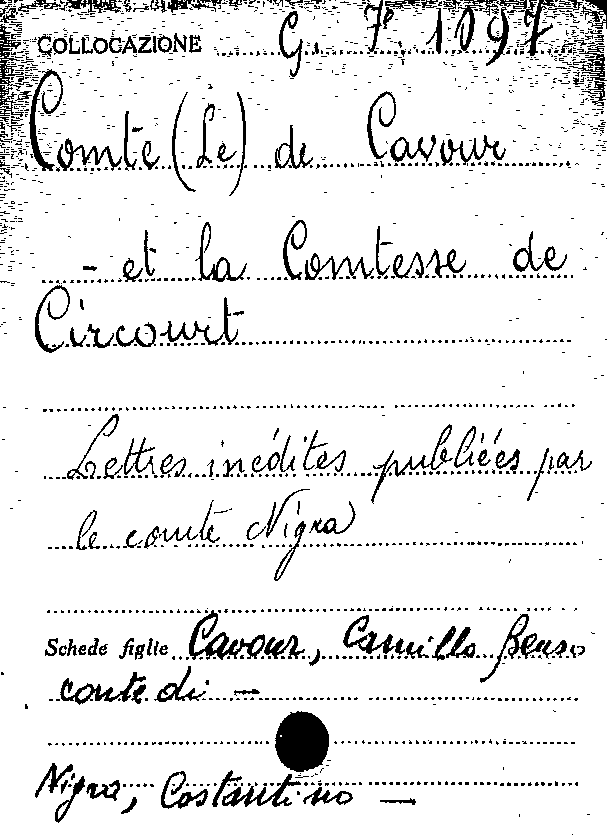 COLLOCAZIONE G. 7ª 1097
Comte (Le) de Cavour
- et la Comtesse de
Circourt
Lettres inédites publiées par
le comte Nigra
Schede figlie Cavour, Camillo Benso
conte di -
Nigra, Costantino -